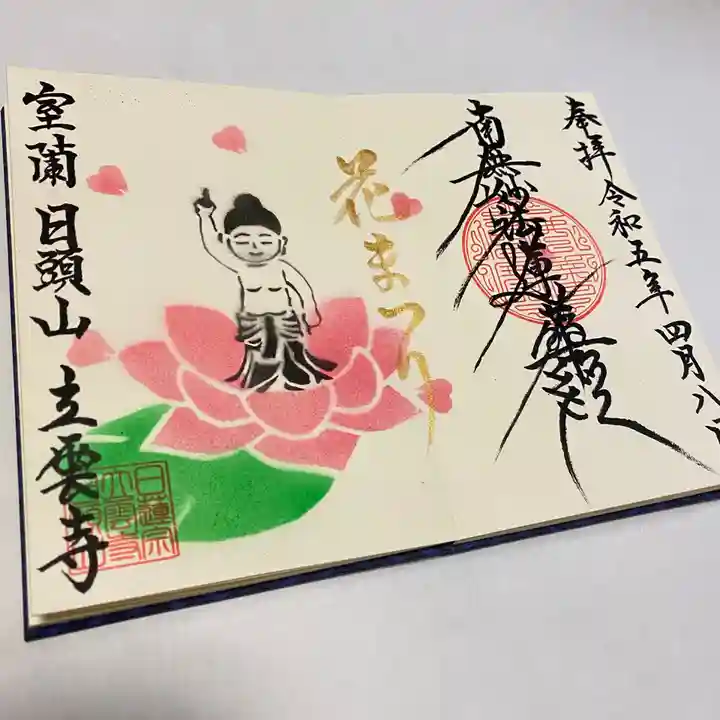 奉拝 令和五年 四月八日
南無妙法蓮華経
花まつり
室蘭 日頭山 立雲寺
日蓮宗
立雲寺